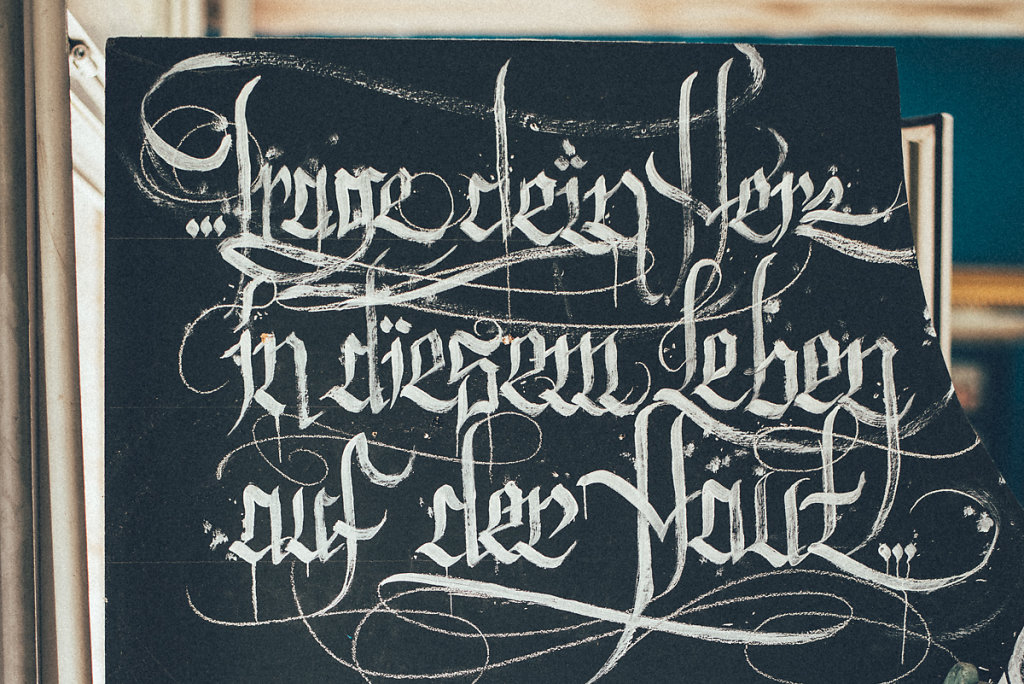 ...trage dein Herz
in diesem Leben
auf der Haut...